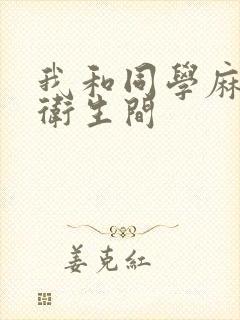 我和同學麻
衛生間
姜克紅